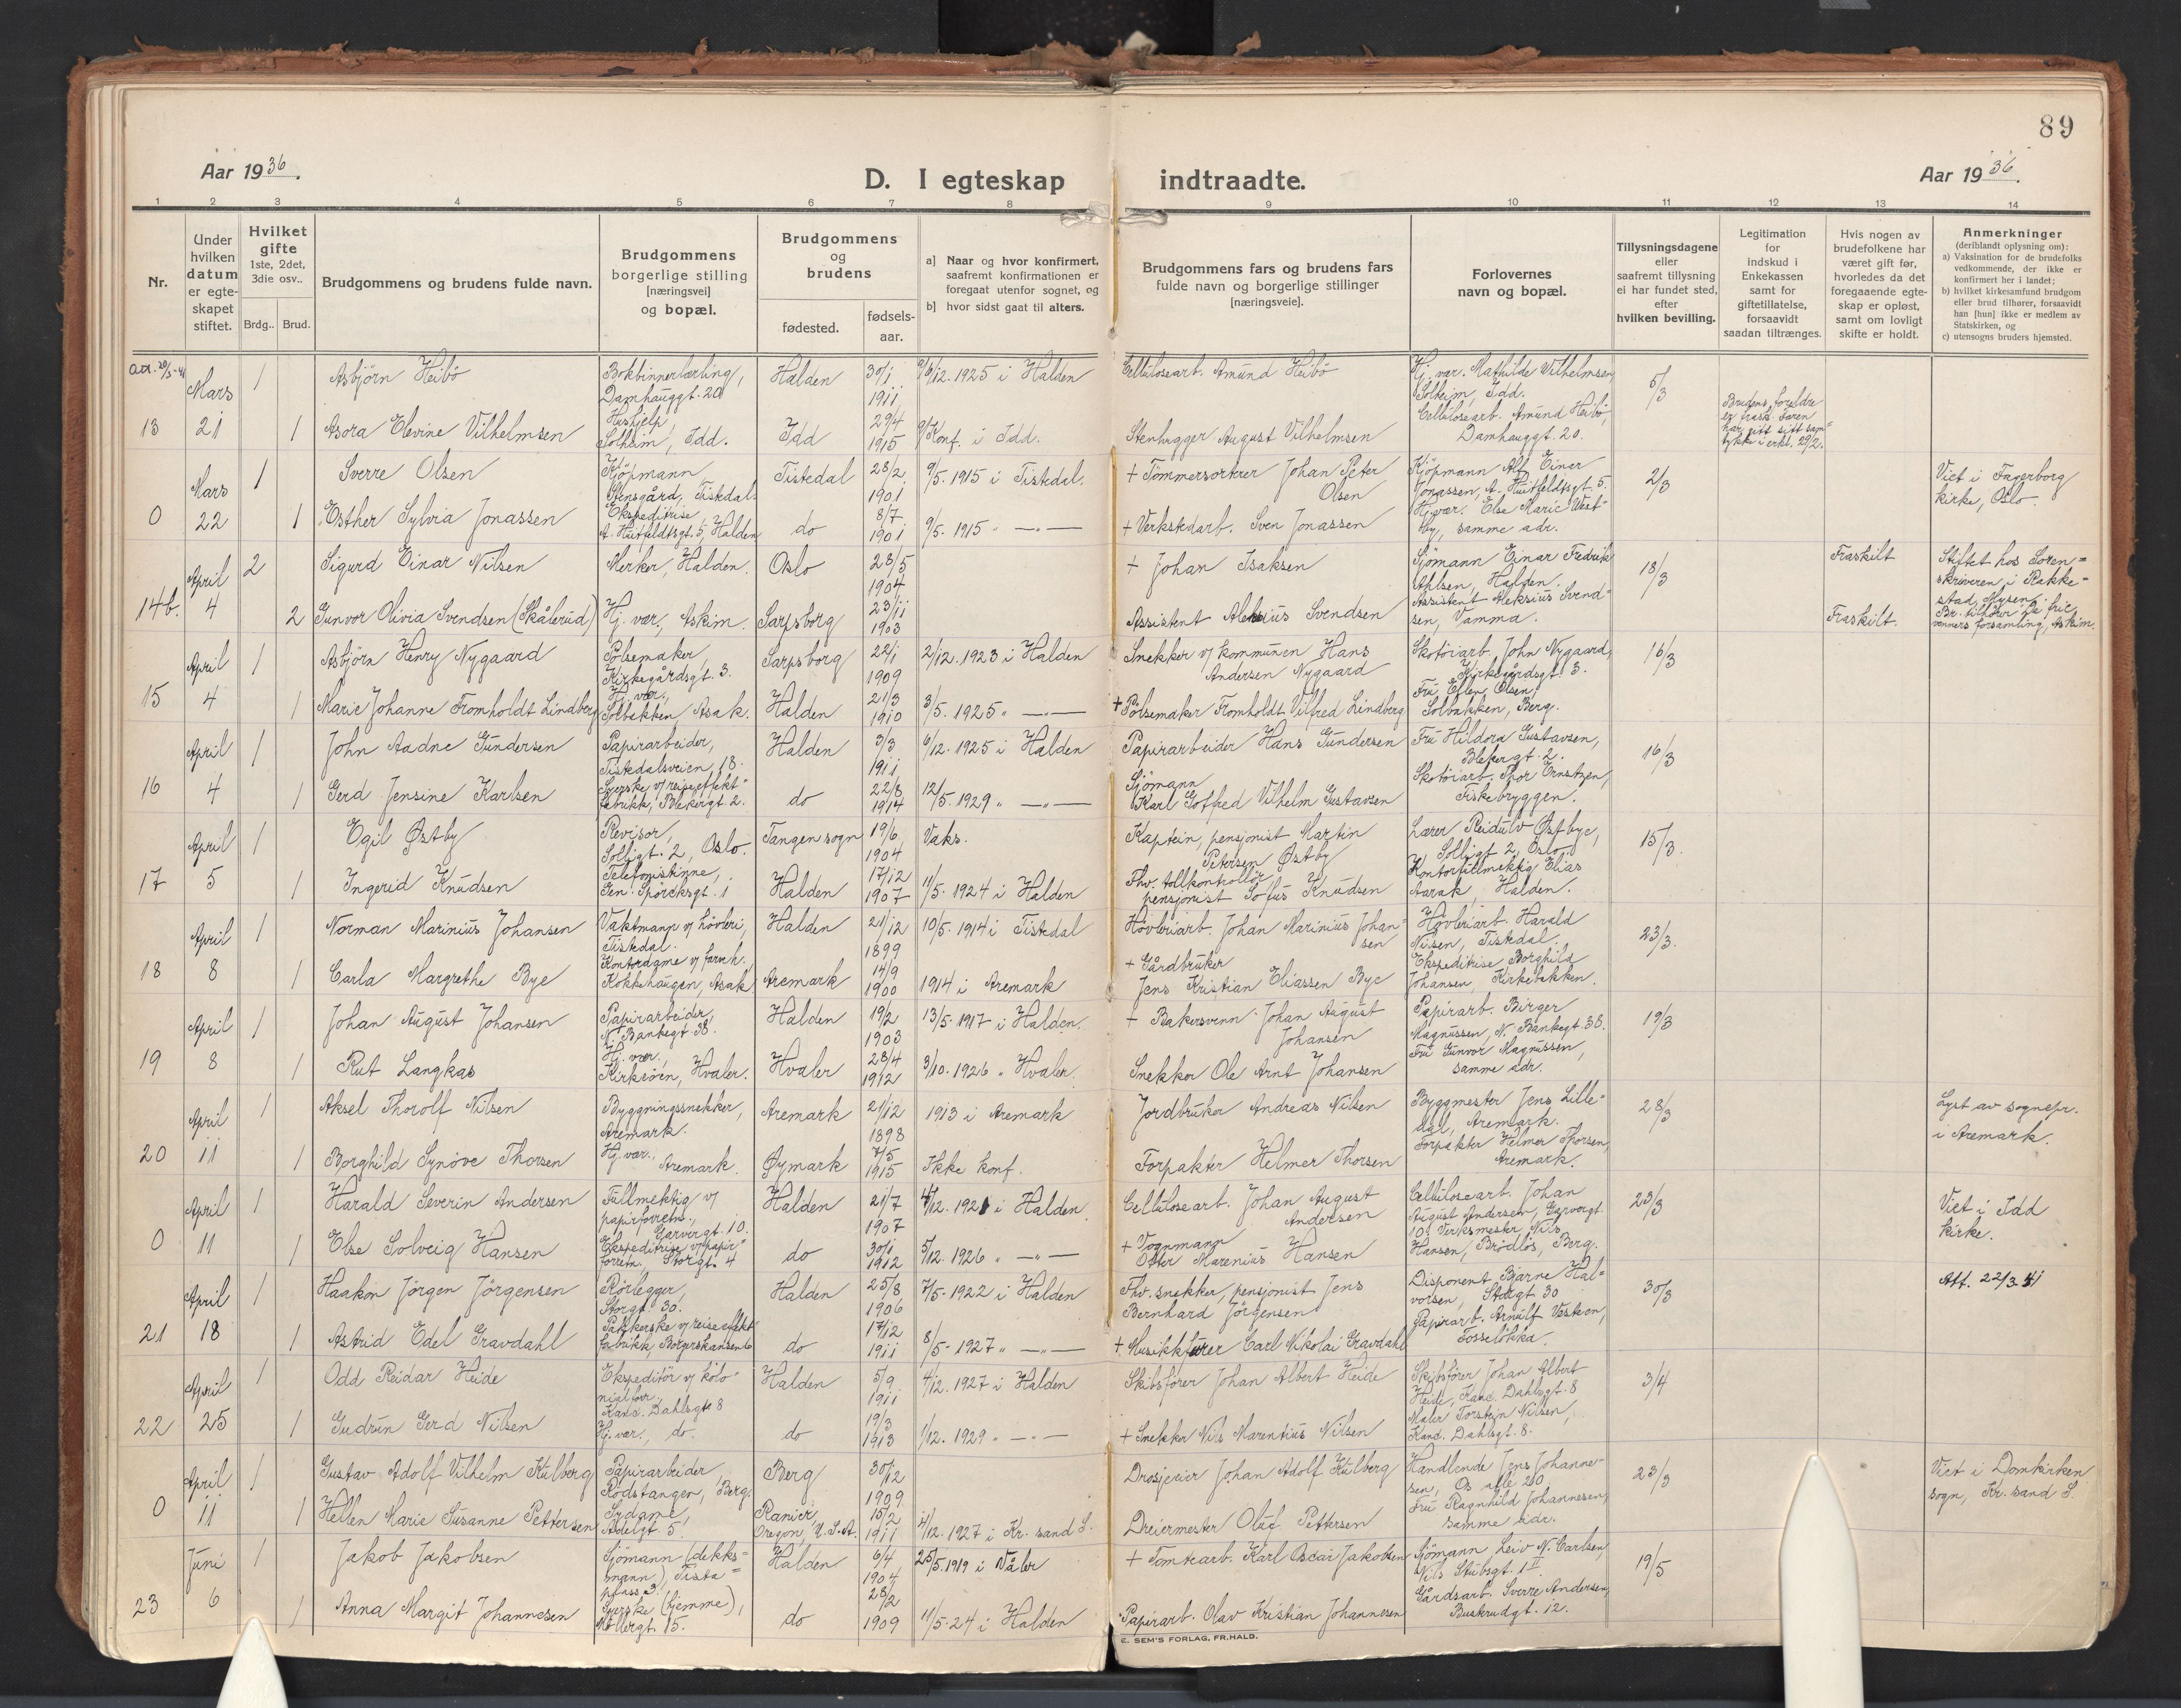 89
Aar 1936.
D. I egteskap indtraadte.
Aar 1936.
1 2 3 4 5 6 7 8 9 10 11 12 13 14
Nr.
Under hvilken datum er egte-skapet stiftet.
Hvilket gifte 1ste, 2det, 3die osv..
Brdg.. Brud.
Brudgommens og brudens fulde navn.
Brudgommens borgerlige stilling [næringsvei] og bopæl.
Brudgommens og brudens
fødested.
fødsels-aar.
a] Naar og hvor konfirmert, saafremt konfirmationen er foregaat utenfor sognet, og
b] hvor sidst gaat til alters.
Brudgommens fars og brudens fars fulde navn og borgerlige stillinger [næringsveie].
Forlovernes navn og bopæl.
Tillysningsdagene eller saafremt tillysning ei har fundet sted, efter hvilken bevilling.
Legitimation for indskud i Enkekassen samt for giftetillatelse, forsaavidt saadan tiltrænges.
Hvis nogen av brudefolkene har været gift før, hvorledes da det foregaaende egte-skap er opløst, samt om lovligt skifte er holdt.
Anmerkninger (deriblandt oplysning om):
a) Vaksination for de brudefolks vedkommende, der ikke er konfirmert her i landet;
b) hvilket kirkesamfund brudgom eller brud tilhører, forsaavidt han [hun] ikke er medlem av Statskirken, og
c) utensogns bruders hjemsted.
Mars 1 Asbjörn Heibö Bokbinnerlærling, Damhauggt. 20 Halden 30/1 1911 6/12. 1925 i Halden Cellulosearb. Amund Heibö Hj. vær. Mathilde Vilhelmsen, Solheim, Idd. 5/3
13 21 1 Asora Elevine Vilhelmsen Hushjelp Solheim, Idd. Idd 29/4 1915 Konf. i Idd. Stenhugger August Vilhelmsen Cellulosearb. Amund Heibö, Damhauggt. 20. Brudens foreldre er frask. Faren har gitt sitt sam-tykke i erkl. 29/2.
Mars 1 Sverre Olsen Kjöpmann Stensgård, Tistedal Tistedal 28/2 1901 9/5. 1915 i Tistedal. + Tömmersorterer Johan Peter Olsen Kjöpmann Alf Einar Jonassen, A. Huitfeldtsgt. 5. 2/3 Viet i Fagerborg kirke, Oslo.
0 22 1 Esther Sylvia Jonassen Ekspeditrise, A. Huitfeldtsgt. 5, Halden do 8/7 1901 9/5. 1915 " —"— + Verkstedarb. Sven Jonassen Hj. vær. Else Marie Westby, samme adr.
April 2 Sigurd Einar Nilsen Merker, Halden. Oslo 28/5 1904 + Johan Isaksen Sjömann Einar Fredrik Ahlsen, Halden. 18/3 Fraskilt Stiftet hos Soren-skriveren i Rakke-stad, Mysen.
14b. 4 2 Gunvor Olivia Svendsen (Skålerud) Hj. vær., Askim. Sarpsborg 23/11 1903 Assistent Aleksius Svendsen Assistent Aleksius Svend-sen, Vamma. Fraskilt. Br. tilhører De frie venners forsamling, Askim.
April 1 Asbjörn Henry Nygaard Pölsemaker, Kirkegårdsgt. 3. Sarpsborg 22/1 1909 2/12. 1923 i Halden Snekker v/ kommunen Hans Andersen Nygaard Skotöiarb. John Nygaard, Kirkegårdsgt. 3. 16/3
15 4 1 Marie Johanne Fromholdt Lindberg Hj. vær., Solbakken, Asak. Halden 21/3 1910 3/5. 1925 " —"— + Pölsemaker Fromholdt Vilfred Lindberg Fru Ellen Olsen, Solbakken, Berg.
April 1 John Aadne Gundersen Papirarbeider, Tistedalsveien 18. Halden 3/3 1911 6/12. 1925 i Halden Papirarbeider Hans Gundersen Fru Hildora Gustavsen, Blekergt. 2. 16/3
16 4 1 Gerd Jensine Karlsen Syerske v/ reiseeffekt-fabrikk, Blekergt. 2. do 22/8 1914 12/5. 1929 " —"— Sjömann Karl Gotfred Vilhelm Gustavsen Skotöiarb. Thor Ernstzen, Fiskebryggen.
April 1 Egil Østby Revisor, Solligt. 2, Oslo. Tangen sogn 19/6 1904 Vaks. Kaptein, pensjonist Martin Petersen Østby Lærer Reidulv Østbye, Solligt 2, Oslo. 15/3.
17 5 1 Ingerid Knudsen Telefonistinne, Gen. Spörcksgt. 1 Halden 17/12 1907 11/5. 1924 i Halden Fhv. tollkontrollör, pensjonist Sofus Knudsen Kontorfullmektig Elias Aarak, Halden.
April 1 Norman Marinius Johansen Vaktmann v/ hövleri, Tistedal. Halden 21/12 1899 10/5. 1914 i Tistedal Hövleriarb. Johan Marinius Johan-sen Hövleriarb. Harald Nilsen, Tistedal. 23/3.
18 8 1 Carla Margrethe Bye Kontordame v/ farveh. Kokkehaugen, Asak Aremark 14/9 1900 1914 i Aremark + Gårdbruker Jens Kristian Eliassen Bye Ekspeditrise Borghild Johansen, Kirkebakken.
April 1 Johan August Johansen Papirarbeider, N. Bankegt 38. Halden 19/2 1903 13/5. 1917 i Halden. + Bakersvenn Johan August Johansen Papirarb. Birger Magnussen, N. Bankegt. 38. 19/3
19 8 1 Rut Langkås Hj. vær., Kirköen, Hvaler. Hvaler 28/4 1912 3/10. 1926 " Hvaler. Snekker Ole Arnt Johansen Fru Gunvor Magnussen, samme adr.
April 1 Aksel Thorolf Nilsen Byggningssnekker, Aremark. Aremark 21/12 1898 1913 i Aremark Jordbruker Andreas Nilsen Byggmester Jens Lille-, Aremark. 28/3 Lyst av sognepr. i Aremark.
20 11 1 Borghild Synöve Thorsen Hj. vær., Aremark. Øymark 7/5 1915 Ikke konf. Forpakter Helmer Thorsen Forpakter Helmer Thorsen, Aremark.
April 1 Harald Severin Andersen Fullmektig v/ papirforretn., Garvergt. 10. Halden 21/7 1907 4/12. 1921 i Halden Cellulosearb. Johan August Andersen Cellulosearb. Johan August Andersen, Garvergt. 10. 23/3 Viet i Idd kirke.
0 11 1 Else Solveig Hansen Ekspeditrise v/ papir-forretn., Storgt. 4 do 30/1 1912 5/12. 1926 " —"— + Vognmann Marenius Hansen Verksmester Nils Hansen, Brödlös, Berg.
April 1 Haakon Jörgen Jörgensen Rörlegger, Storgt. 30. Halden 25/8 1906 7/5. 1922 i Halden Fhv. snekker, pensjonist Jens Bernhard Jörgensen Disponent Bjarne Hal-vorsen, Storgt 30 30/3 Att. 22/3 41
21 18 1 Astrid Edel Gravdahl Pakkerske v/ reiseeffekt-fabrikk, Borgerskansen 6 do 17/12 1911 8/5. 1927 " —"— + Musikkfører Carl Nikolai Gravdahl Papirarb. Arnulf, Fosselökka.
April 1 Odd Reidar Heide Ekspeditör v/ kolo-nialforr., Kand. Dahlsgt 8 Halden 5/9 1911 4/12. 1927 i Halden Skibsförer Johan Albert Heide Skibsförer Johan Albert Heide, Kand. Dahlsgt. 8 3/4
22 25 1 Gudrun Gerd Nilsen Hj. vær., do. do 19/3 1913 1/12. 1929 " —"— + Snekker Nils Marentius Nilsen Maler Torstein Nilsen, Kand. Dahlsgt. 8.
April 1 Gustav Adolf Vilhelm Kulberg Papirarbeider, Rödstangen, Berg. Berg 30/12 1909 Drosjeeier Johan Adolf Kulberg Handlende Jens Johanne-sen, Os alle 20 23/3 Viet i Domkirken sogn, Kr. sand S.
0 11 1 Hellen Marie Susanne Pettersen Sydame, Adelgt. 5. Ranier, Oregon, U.S.A. 15/2 1911 4/12. 1927 i Kr. sand S. Dreiermester Oluf Pettersen Fru Ragnhild Johannesen, samme adr.
Juni 1 Jakob Jakobsen Sjömann (dekks-mann), Tista-plass 3. Halden 6/4 1904 25/5. 1919 i Våler + Tomtearb. Karl Oscar Jakobsen Sjömann Leiv N. Carlsen, Nils Stubsgt. 1 II 19/5
23 6 1 Anna Margit Johannesen Syerske (hjemme), Möllergt. 15. do 28/2 1909 11/5. 24 i Halden Papirarb. Olav Kristian Johannesen Gårdsarb. Sverre Andersen, Buskrudgt. 12.
E. SEM'S FORLAG, FR.HALD.